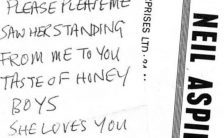 PLEASE PLEASE ME
SAW HER STANDING
FROM ME TO YOU
TASTE OF HONEY
BOYS
SHE LOVES YOU
PRISES LTD
NEIL ASPIN